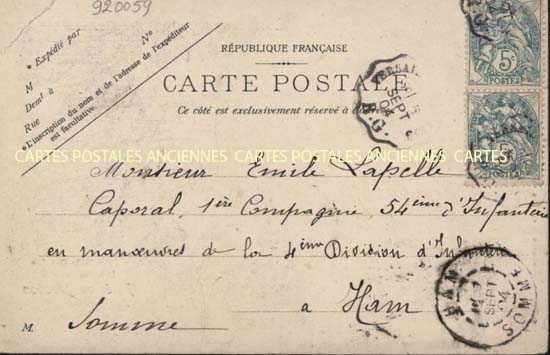 920059
* Expédié par N°
M
Demt à
Rue
*L'inscription du nom et de l'adresse de l'expéditeur
est facultative.
RÉPUBLIQUE FRANÇAISE
CARTE POSTALE
Ce côté est exclusivement réservé à
VERSAI
SEPT
04
R.G.
5c
POSTES
5c
POSTES
CARTES POSTALES ANCIENNES CARTES POSTALES ANCIENNES CARTES POSTALES ANCIENNES
Monsieur Emile Lapelle
Caporal, 1ère Compagnie, 54ème d'Infanterie
en manœuvres de la 4ème Division d'Infanterie
a Ham
M. Somme
HAM
SEPT
04
SOMME